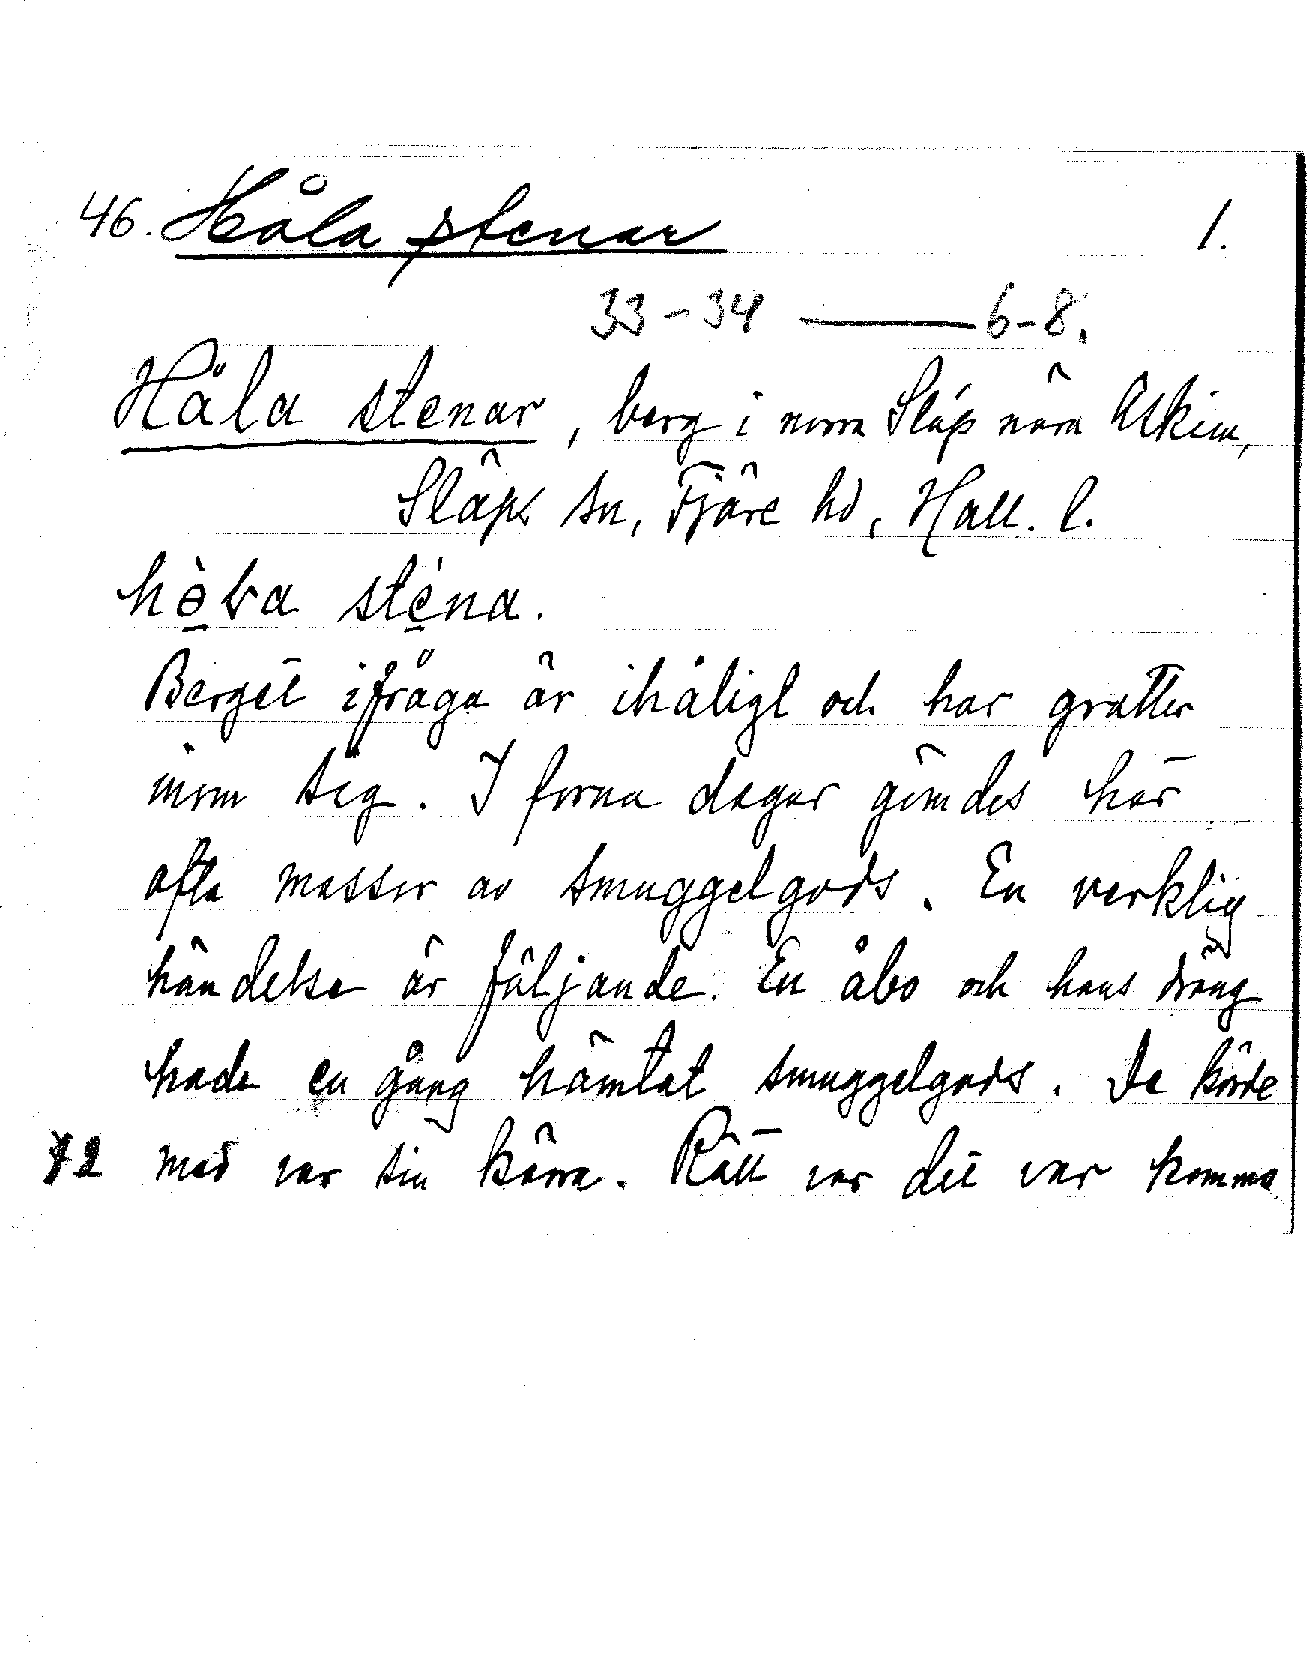 46. Håla stenar 1.
33-34 — 6-8.
Håla stenar, berg i norra Släp nära Askim,
Släps sn, Fjäre hd, Hall. l.
stèna.
Berget ifråga är ihåligt och har grottor
inom sig. I forna dagar gömdes här
ofta massor av smuggelgods. En verklig
händelse är följande. En åbo och hans dräng
hade en gång hämtat smuggelgods. De körde
med var sin kärra. Rätt var det var komma